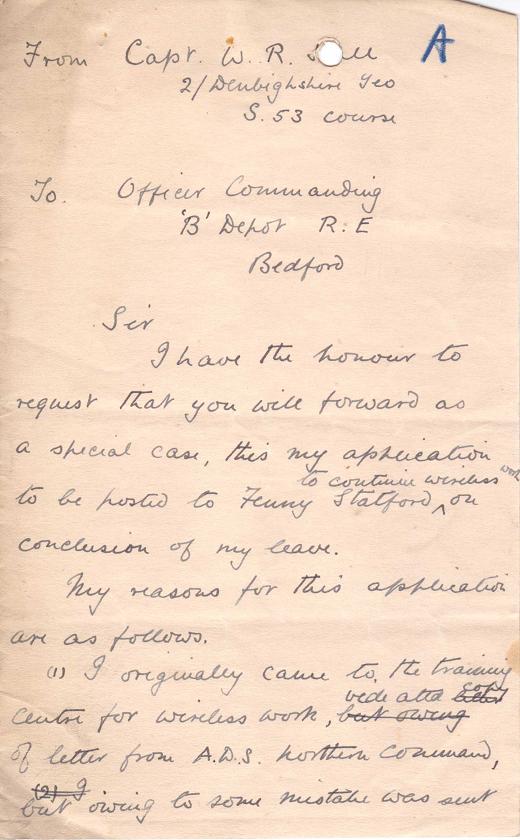 From Capt. W. R. A
2/Denbighshire Yeo
S.53 course
To. Officer Commanding
'B' Depot R.E
Bedford
Sir
I have the honour to
request that you will forward as
a special case, this my application
to continue wireless work
to be posted to Fenny Statford, ^ on
conclusion of my leave.
My reasons for this application
are as follows.
(1) I originally came to the training
vide attd copy
centre for wireless work, but owing
of letter from A.D.S. Northern Command,
(2) I
but owing to some mistake was sent